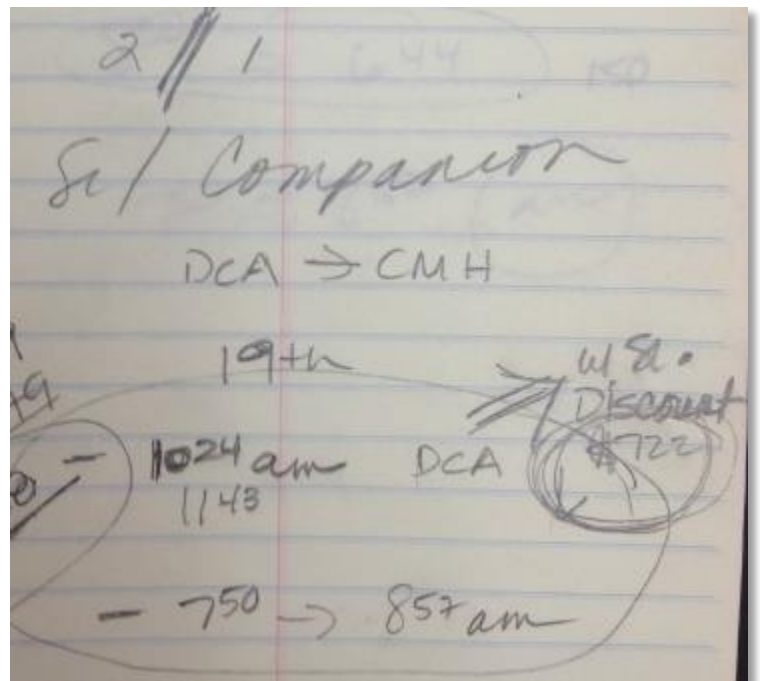 2 // 1
Sr / Companion
DCA → CMH
19th
w/ Sr.
Discount
$722
- 1024 am DCA
1143
- 750 → 857 am